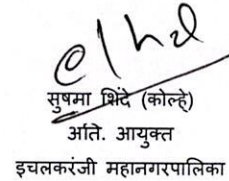 सुषमा शिंदे (कोल्हे)
अति. आयुक्त
इचलकरंजी महानगरपालिका